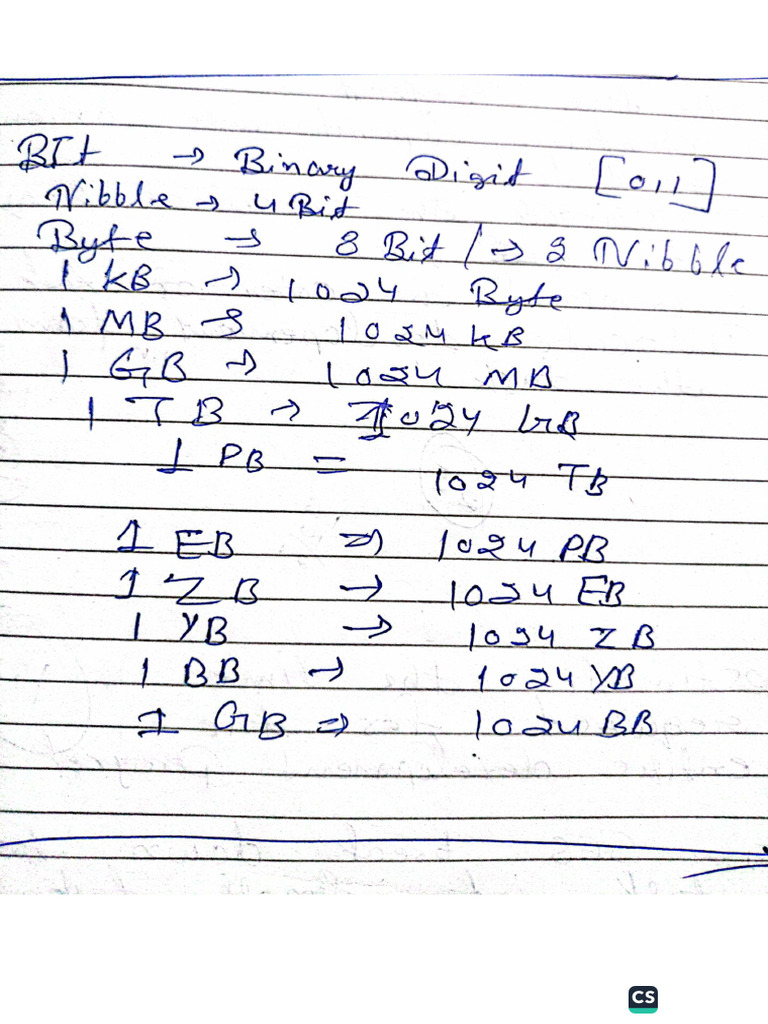 BIt → Binary Digit [0,1]
Nibble → 4 Bit
Byte → 8 Bit / → 2 Nibble
1 KB → 1024 Byte
1 MB → 1024 KB
1 GB → 1024 MB
1 TB → 1024 GB
1 PB = 1024 TB
1 EB ⇒ 1024 PB
1 ZB → 1024 EB
1 YB → 1024 ZB
1 BB → 1024 YB
1 GB ⇒ 1024 BB
CS